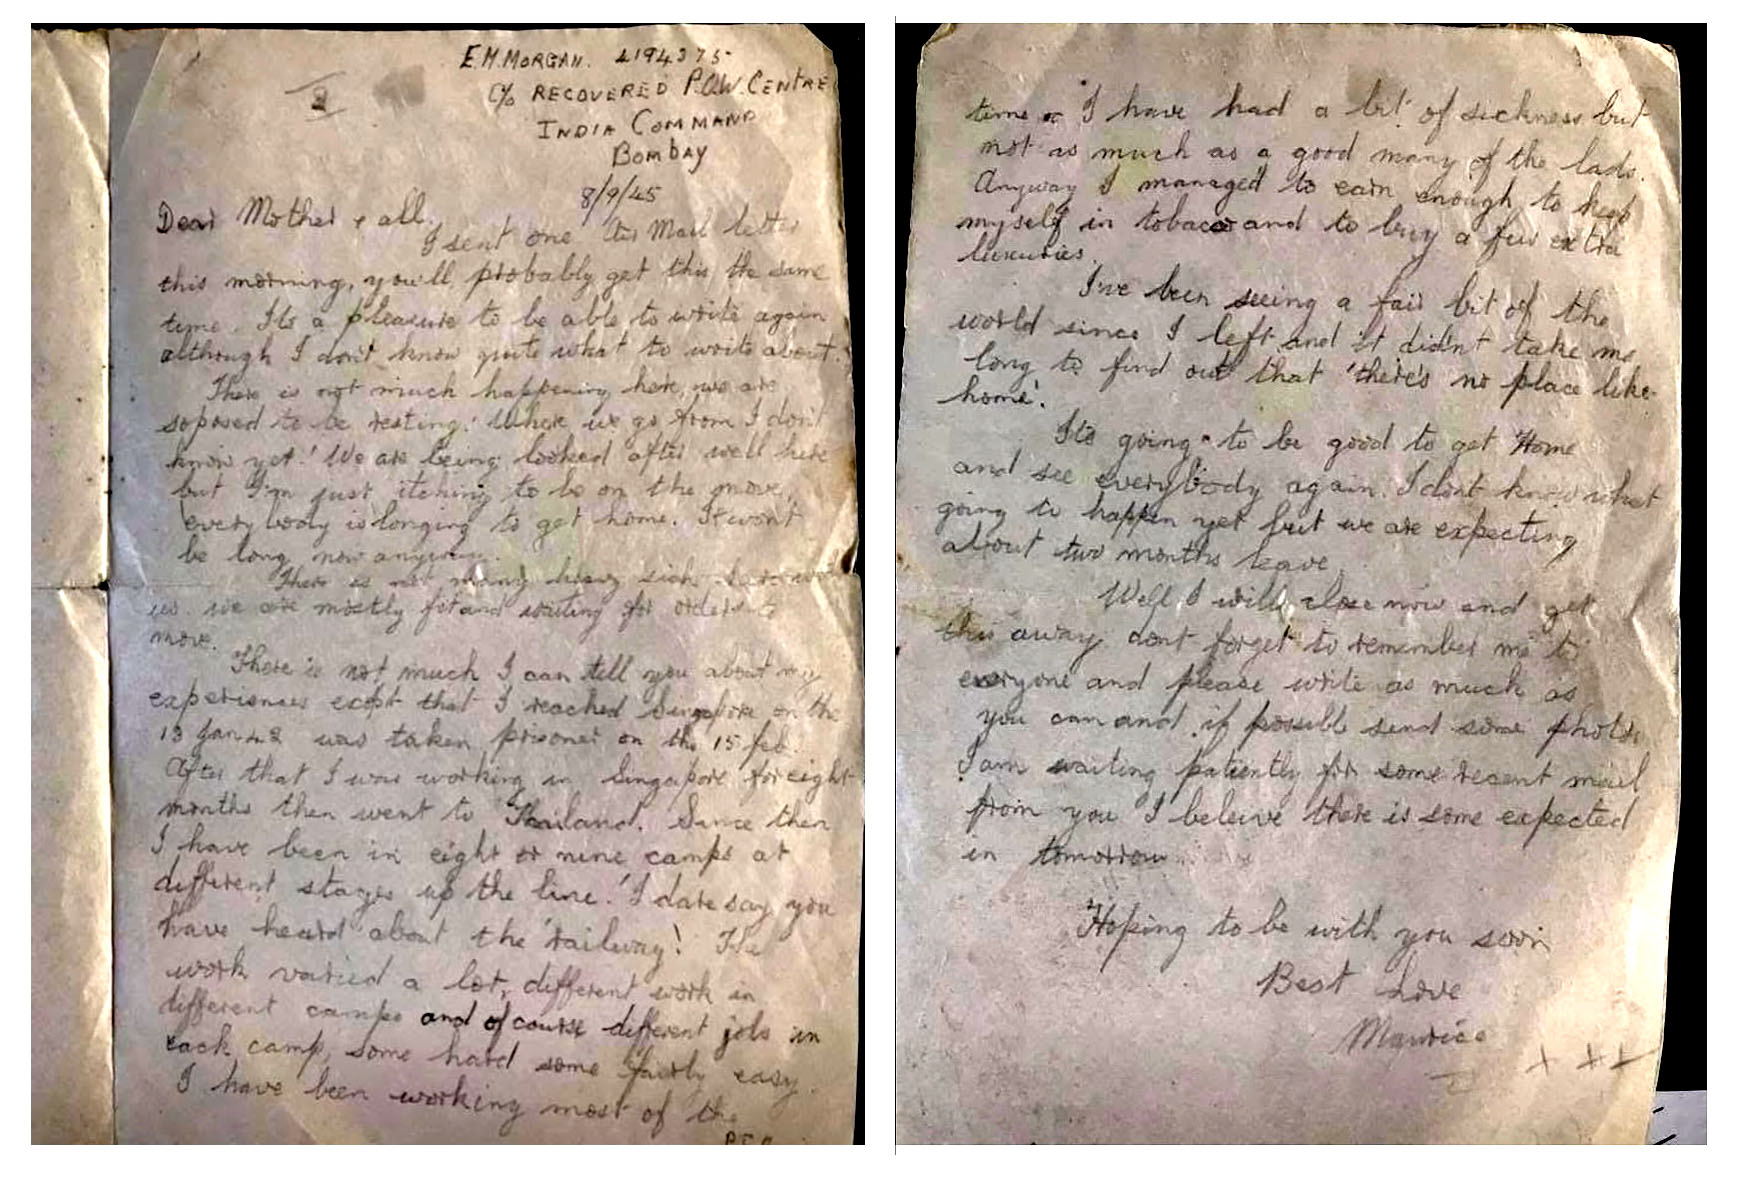 E.M. MORGAN. 4194375
C/o RECOVERED P.O.W. CENTRE
INDIA COMMAND
BOMBAY
8/9/45
Dear Mother & all.
I sent one Air Mail letter
this morning, you'll probably get this the same
time. Its a pleasure to be able to write again
although I don't know quite what to write about.
There is not much happening here, we are
soposed to be resting! Where we go from I don't
know yet! We are being looked after well here
but I'm just itching to be on the move,
everybody is longing to get home. It wont
be long now anyway.
There is not many heavy sick
us. we are mostly fit and waiting for orders to
move.
There is not much I can tell you about my
experiences ecept that I reached Singapore on the
13 Jan 42 was taken prisoner on the 15 feb.
After that I was working in Singapore for eight
months then went to Thailand. Since then
I have been in eight or nine camps at
different stages up the line! I dare say you
have heard about the 'railway'! The
work varied a lot, different work in
different camps and of course different jobs in
each camp, some hard some fairly easy.
I have been working most of the
time I have had a bit of sickness but
not as much as a good many of the lads.
Anyway I managed to earn enough to keep
myself in tobacco and to buy a few extra
luxuries.
I've been seeing a fair bit of the
world since I left and it didn't take me
long to find out that 'there's no place like
home'.
Its going to be good to get Home
and see everybody again. I dont know what
going to happen yet but we are expecting
about two months leave
Well I will close now and get
this away dont forget to remember me to
everyone and please write as much as
you can and if possible send some photos
I am waiting patiently for some recent mail
from you I beleive there is some expected
in tomorrow
Hoping to be with you soon
Best Love
Maurice
x x x